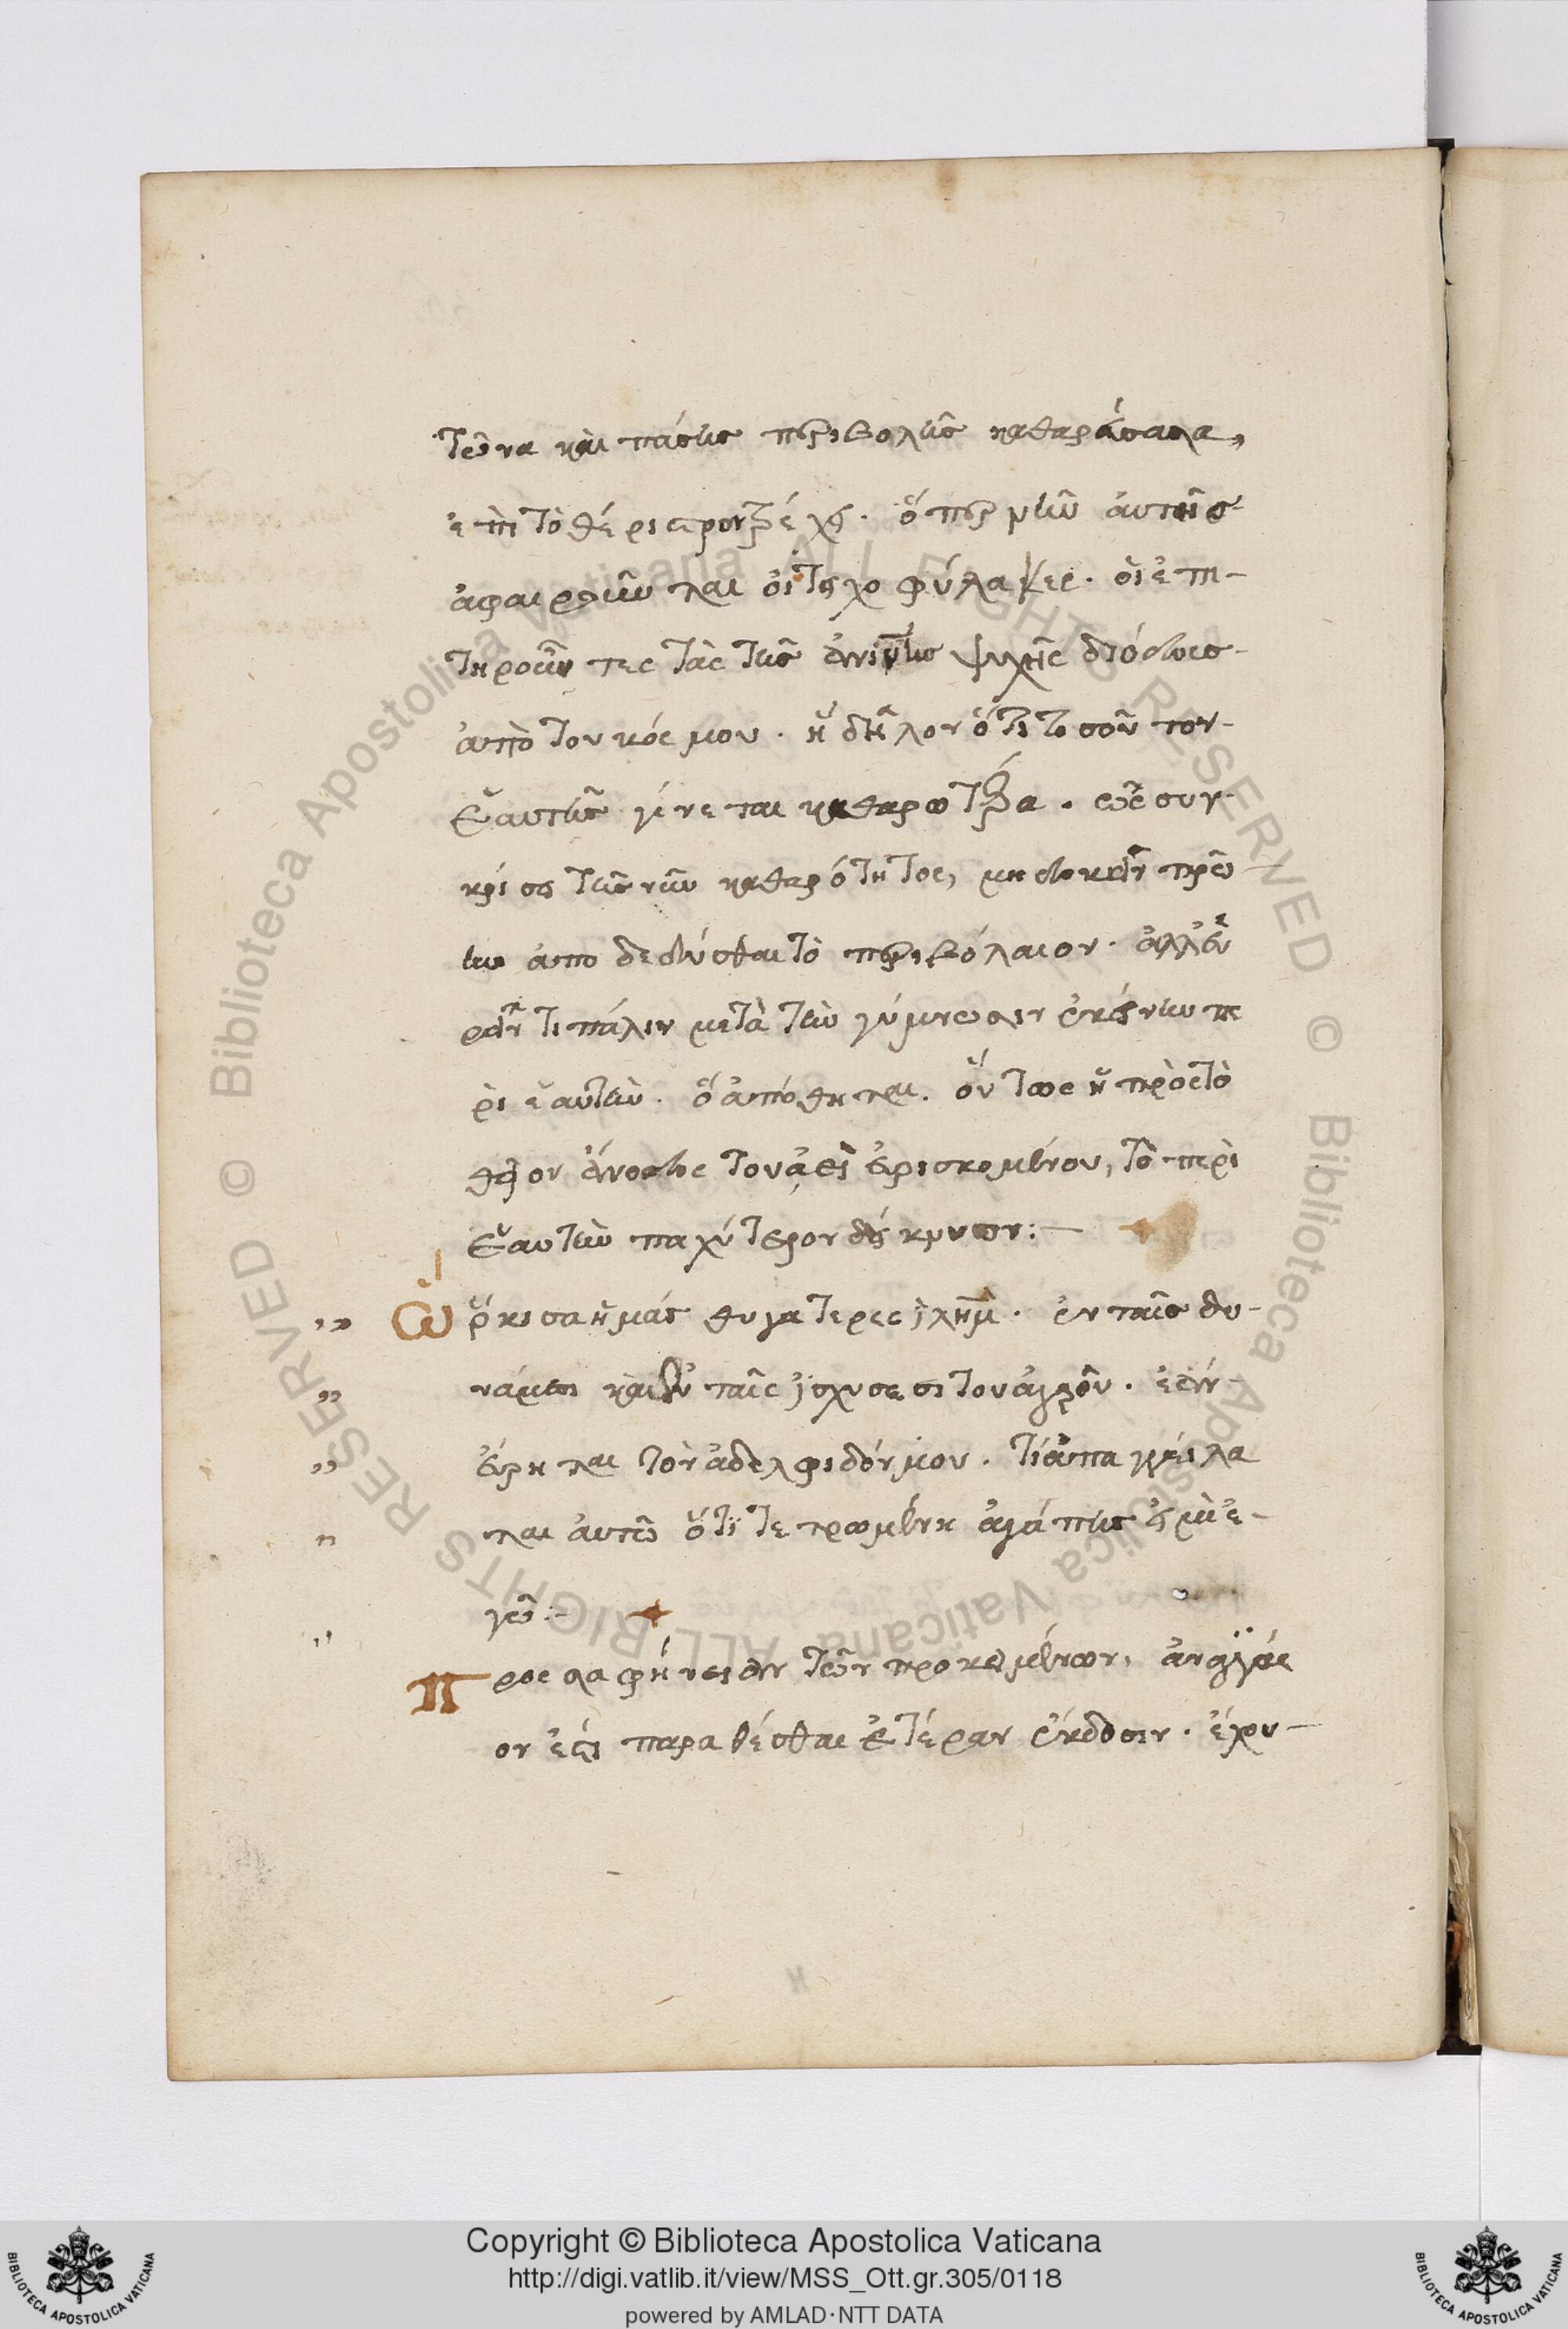 τῶνα καὶ πάσης περιβολῆς καθαράσασα,
ἐπὶ τὸ θέριστρον τρέχει. ὅπερ νῦν αὐτῆς
ἀφαιροῦνται οἱ τειχοφύλακες. οἱ ἐπι-
τηροῦντες τὰς τῆς ψυχῆς διόδους
ἀπὸ τοῦ κόσμου. ἢ δῆλον ὅτι τοσοῦτον
ἑαυτῆς γίνεται καθαρωτέρα. ὡς συγ-
κρίσει τῆς νῦν καθαρότητος, μὴ δοκεῖν πρῶ-
ην ἀποδεδύσθαι τὸ περιβόλαιον. ἀλλ' εὑ
ρεῖν τι πάλιν μετὰ τὴν γύμνωσιν ἐκείνην πε
ρὶ ἑαυτὴν. ὃ ἀπόθηται. οὕτως ἡ πρὸς τὸ
θεῖον ἄνοδος τοῦ ἀεὶ εὑρισκομένου, τὸ περὶ
ἑαυτὴν παχύτερον δείκνυσιν:—
Ὥρκισα ἡμᾶς θυγατέρες ἰλημ. ἐν ταῖς δυ-
νάμεσι καὶ ἐν ταῖς ἰσχύσεσι τοῦ ἀγροῦ. ἐὰν
εὕρηται τὸν ἀδελφιδόν μου. τί ἀπαγγείλη
ται αὐτῶ ὅτι τετρωμένη ἀγάπης εἰμὶ ἐ-
γῶ:-
Πρὸς σαφήνειαν τῶν προκειμένων, ἀναγκαῖ
ον ἐστὶ παραθέσθαι ἑτέραν ἔκδοσιν. ἔχου-
Copyright © Biblioteca Apostolica Vaticana
http://digi.vatlib.it/view/MSS_Ott.gr.305/0118
powered by AMLAD·NTT DATA